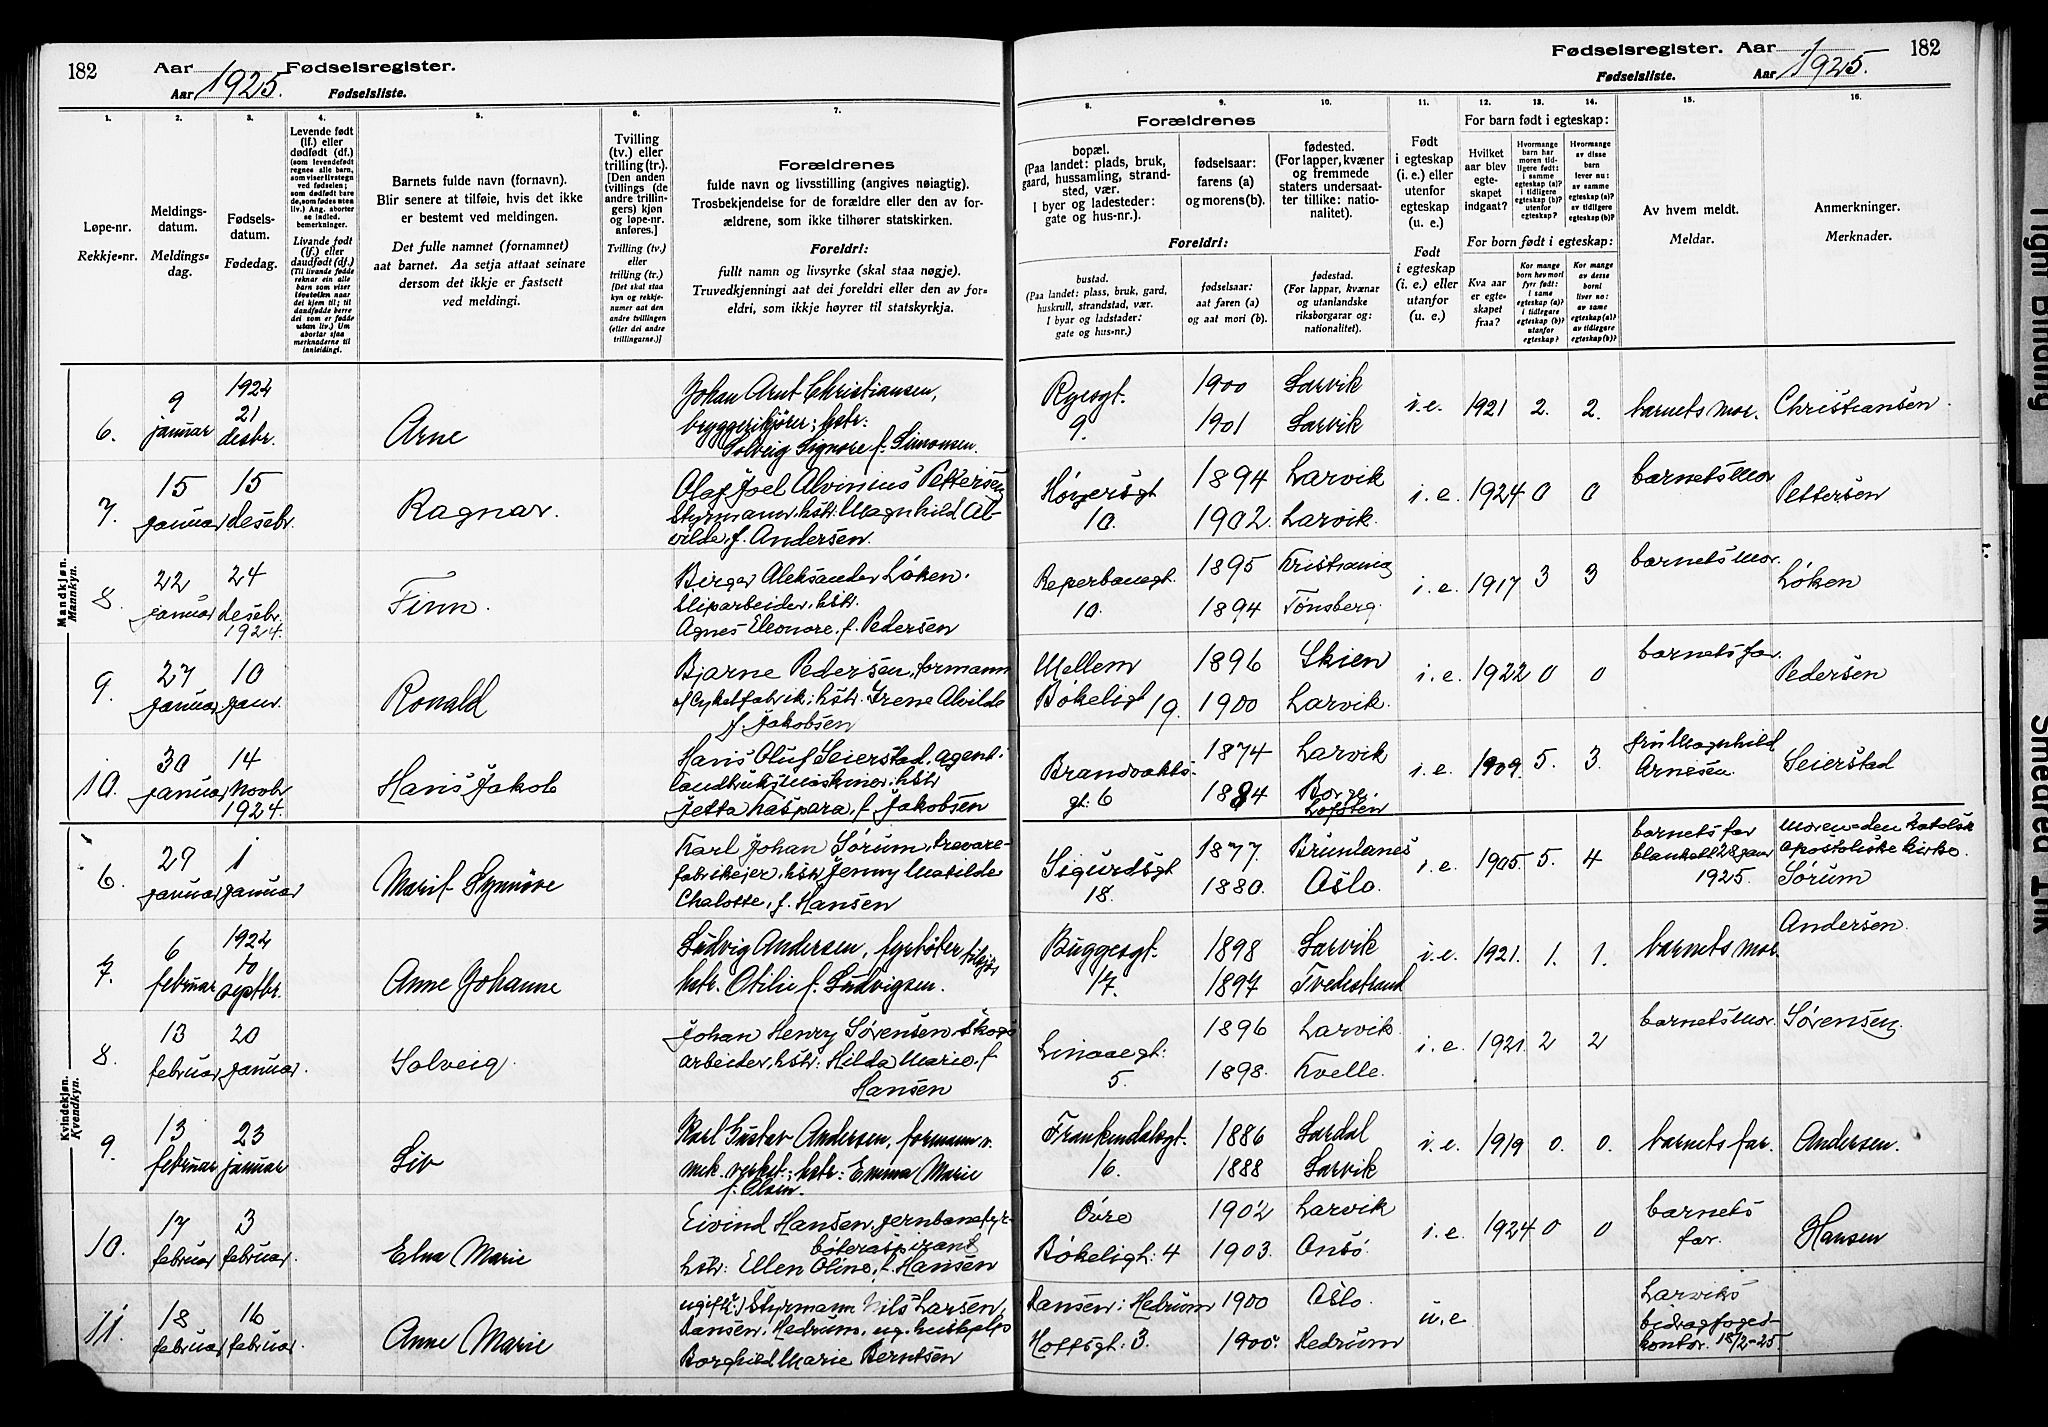 182
Aar 1925. Fødselsregister.
Aar Fødselsliste.
1. 2. 3. 4. 5. 6. 7.
Løpe-nr.
Rekkje-nr.
Meldings-
datum.
Meldings-
dag.
Fødsels-
datum.
Fødedag.
Levende født
(lf.) eller
dødfødt (df.)
(som levendefødt
regnes alle barn,
som viser livstegn
ved fødselen;
som dødfødt bare
de, som fødes uten
liv.) Ang. aborter
se indled.
bemerkninger.
Livande født
(lf.) eller
daudfødt (df.)
(Til livande fødde
reknar ein alle
barn som viser
livsteikn naar
dei kjem til; til
daudfødde berre
dei som er fødde
utan liv.) Um
abortar sjaa
merknaderne til
innleidingi.
Barnets fulde navn (fornavn).
Blir senere at tilføie, hvis det ikke
er bestemt ved meldingen.
Det fulle namnet (fornamnet)
aat barnet. Aa setja attaat seinare
dersom det ikkje er fastsett
ved meldingi.
Tvilling
(tv.) eller
trilling (tr.).
[Den anden
tvillings (de
andre trillin-
gers) kjøn
og løpe-nr.
anføres.]
Tvilling (tv.)
eller
trilling (tr.)
[Det skal staa
kyn og rekkje-
numer aat den
andre tvillingen
(eller dei andre
trillingarne.)]
Forældrenes
fulde navn og livsstilling (angives nøiagtig).
Trosbekjendelse for de forældre eller den av for-
ældrene, som ikke tilhører statskirken.
Foreldri:
fullt namn og livsyrke (skal staa nøgje).
Truvedkjenningi aat dei foreldri eller den av for-
eldri, som ikkje høyrer til statskyrkja.
Fødselsregister. Aar 1925. 182
Fødselsliste. Aar
8. 9. 10. 11. 12. 13. 14. 15. 16.
Forældrenes
bopæl.
(Paa landet: plads, bruk,
gaard, hussamling, strand-
sted, vær.
I byer og ladesteder:
gate og hus-nr.).
fødselsaar:
farens (a)
og morens (b).
fødested.
(For lapper, kvæner
og fremmede
staters undersaat-
ter tillike: natio-
nalitet).
Foreldri:
bustad.
(Paa landet: plass, bruk, gard,
huskrull, strandstad, vær.
I byar og ladstader:
gate og hus-nr.)
fødselsaar:
aat faren (a)
og aat mori (b).
fødestad.
(For lappar, kvænar
og utanlandske
riksborgarar og:
nationalitet).
Født
i egteskap
(i. e.) eller
utenfor
egteskap
(u. e.)
Født
i egteskap
(i. e.) eller
utanfor
(u. e.)
For barn født i egteskap:
Hvilket
aar blev
egte-
skapet
indgaat?
Hvormange
barn har
moren tid-
ligere født:
i samme
egteskap (a)?
i tidligere
egteskap (b)?
utenfor
egteskap?
Hvormange
av disse
barn
lever nu:
av samme
egteskap (a)?
av tidligere
egteskap (b)?
For born født i egteskap:
Kva aar
er egte-
skapet
fraa?
Kor mange
born hev mori
fyrr født:
i same
egteskap (a)?
i tidlegare
egteskap (b)?
utanfor
egteskap?
Kor mange
av desse
borni
liver no:
av same
egteskap (a)?
av tidlegare
egteskap (b)?
Av hvem meldt.
Meldar.
Anmerkninger.
Merknader.
Mandkjøn.
Mannkyn.
6. 9 januar 1924 21 desbr. Arne
Johan Arnt Christiansen,
bryggerikjører; hstr:
Solveig Signore f. Simonsen.
Ryesgt. 9. 1900 1901 Larvik Larvik i.e. 1921 2. 2. barnets mor. Christiansen.
7. 15 januar 15 desebr. Ragnar.
Olaf Joel Alvinius Pettersen
Styrmann. hstr. Magnhild Al-
vilde, f. Andersen.
Høyersgt 10. 1894 1902. Larvik Larvik. i.e. 1924 0 0 barnets mor Pettersen
8. 22 januar 24 desebr. 1924. Finn.
Birger Aleksander Løken.
Sliparbeider. hstr.
Agnes Eleonore. f. Pedersen
Reperbanegt. 10. 1895 1894 Kristiania Tønsberg. i.e. 1917 3 3 barnets mor. Løken
9. 27 januar 10 janr. Ronald
Bjarne Pedersen, formann
v/ Cykelfabrik; hstr. Irene Alvilde
f. Jakobsen
Mellem Bøkeligt 19. 1896 1900 Skien Larvik. i.e. 1922 0 0 barnets far. Pedersen
10. 30 januar 14 novbr 1924. Hans Jakob
Hans Oluf Seierstad, agent i
landbruksmaskiner; hstr
Jetta Kaspara, f. Jakobsen
Brandvakts- gt: 6 1874 1884 Larvik Borge, Lofoten i.e. 1909. 5. 3. fru Magnhild Arnesen. Seierstad
Kvindekjøn.
Kvendkyn.
6. 29 januar 1 januar Marit Synnøve
Karl Johan Sørum, trevare-
fabrikejer, hstr Jenny Matilde
Chalotte, f. Hansen
Sigurdsgt 18. 1877 1880. Brunlanes Oslo. i.e. 1905. 5. 4 barnets far blankett 28 janr 1925. moren = den katolsk apostoliske kirke. Sørum
7. 6 februar 1924 10 septbr. Anne Johanne
Ludvig Andersen, fyrbøter tilsjøs
hstr. Otilie f. Ludvigsen.
Buggesgt. 17. 1898 1897 Larvik Tvedestrand i.e. 1921. 1. 1. barnets mor. Andersen.
8. 13 februar 20 januar. Solveig.
Johan Henry Sørensen skogs
arbeider. hstr: Hilda Marie, f
Hansen
Linaaegt: 5. 1896 1898. Larvik. Kvelle. i.e. 1921. 2 2 barnets mor. Sørensen.
9. 13 februar 23 januar Liv
Karl Gustav Andersen, formann v.
mek. verkst.; hstr: Emma Marie
f. Olsen.
Frankendalsgt. 16. 1886 1888 Lardal Larvik i.e. 1919 0. 0. barnets far. Andersen.
10. 17 februar 3 februar. Elna Marie
Eivind Hansen, jernbanefyr-
bøteraspirant
hstr: Ellen Oline, f. Hansen
Øvre Bøkeligt: 4 1902 1903. Larvik Onsø. i.e. 1924 0 0 barnets far. Hansen
11. 18 februar 16 februar. Anne Marie
ugift (?) Styrmann Nils Larsen,
Hansen, Hedrum, ug. hushjelp
Borghild Marie Berntsen
Hansen: Hedrum Hoffsgt: 3. 1900 1900. Oslo. Hedrum u.e Larviks bidragfoged- kontor. 18/2-25.
Tight Binding
Smeared Ink